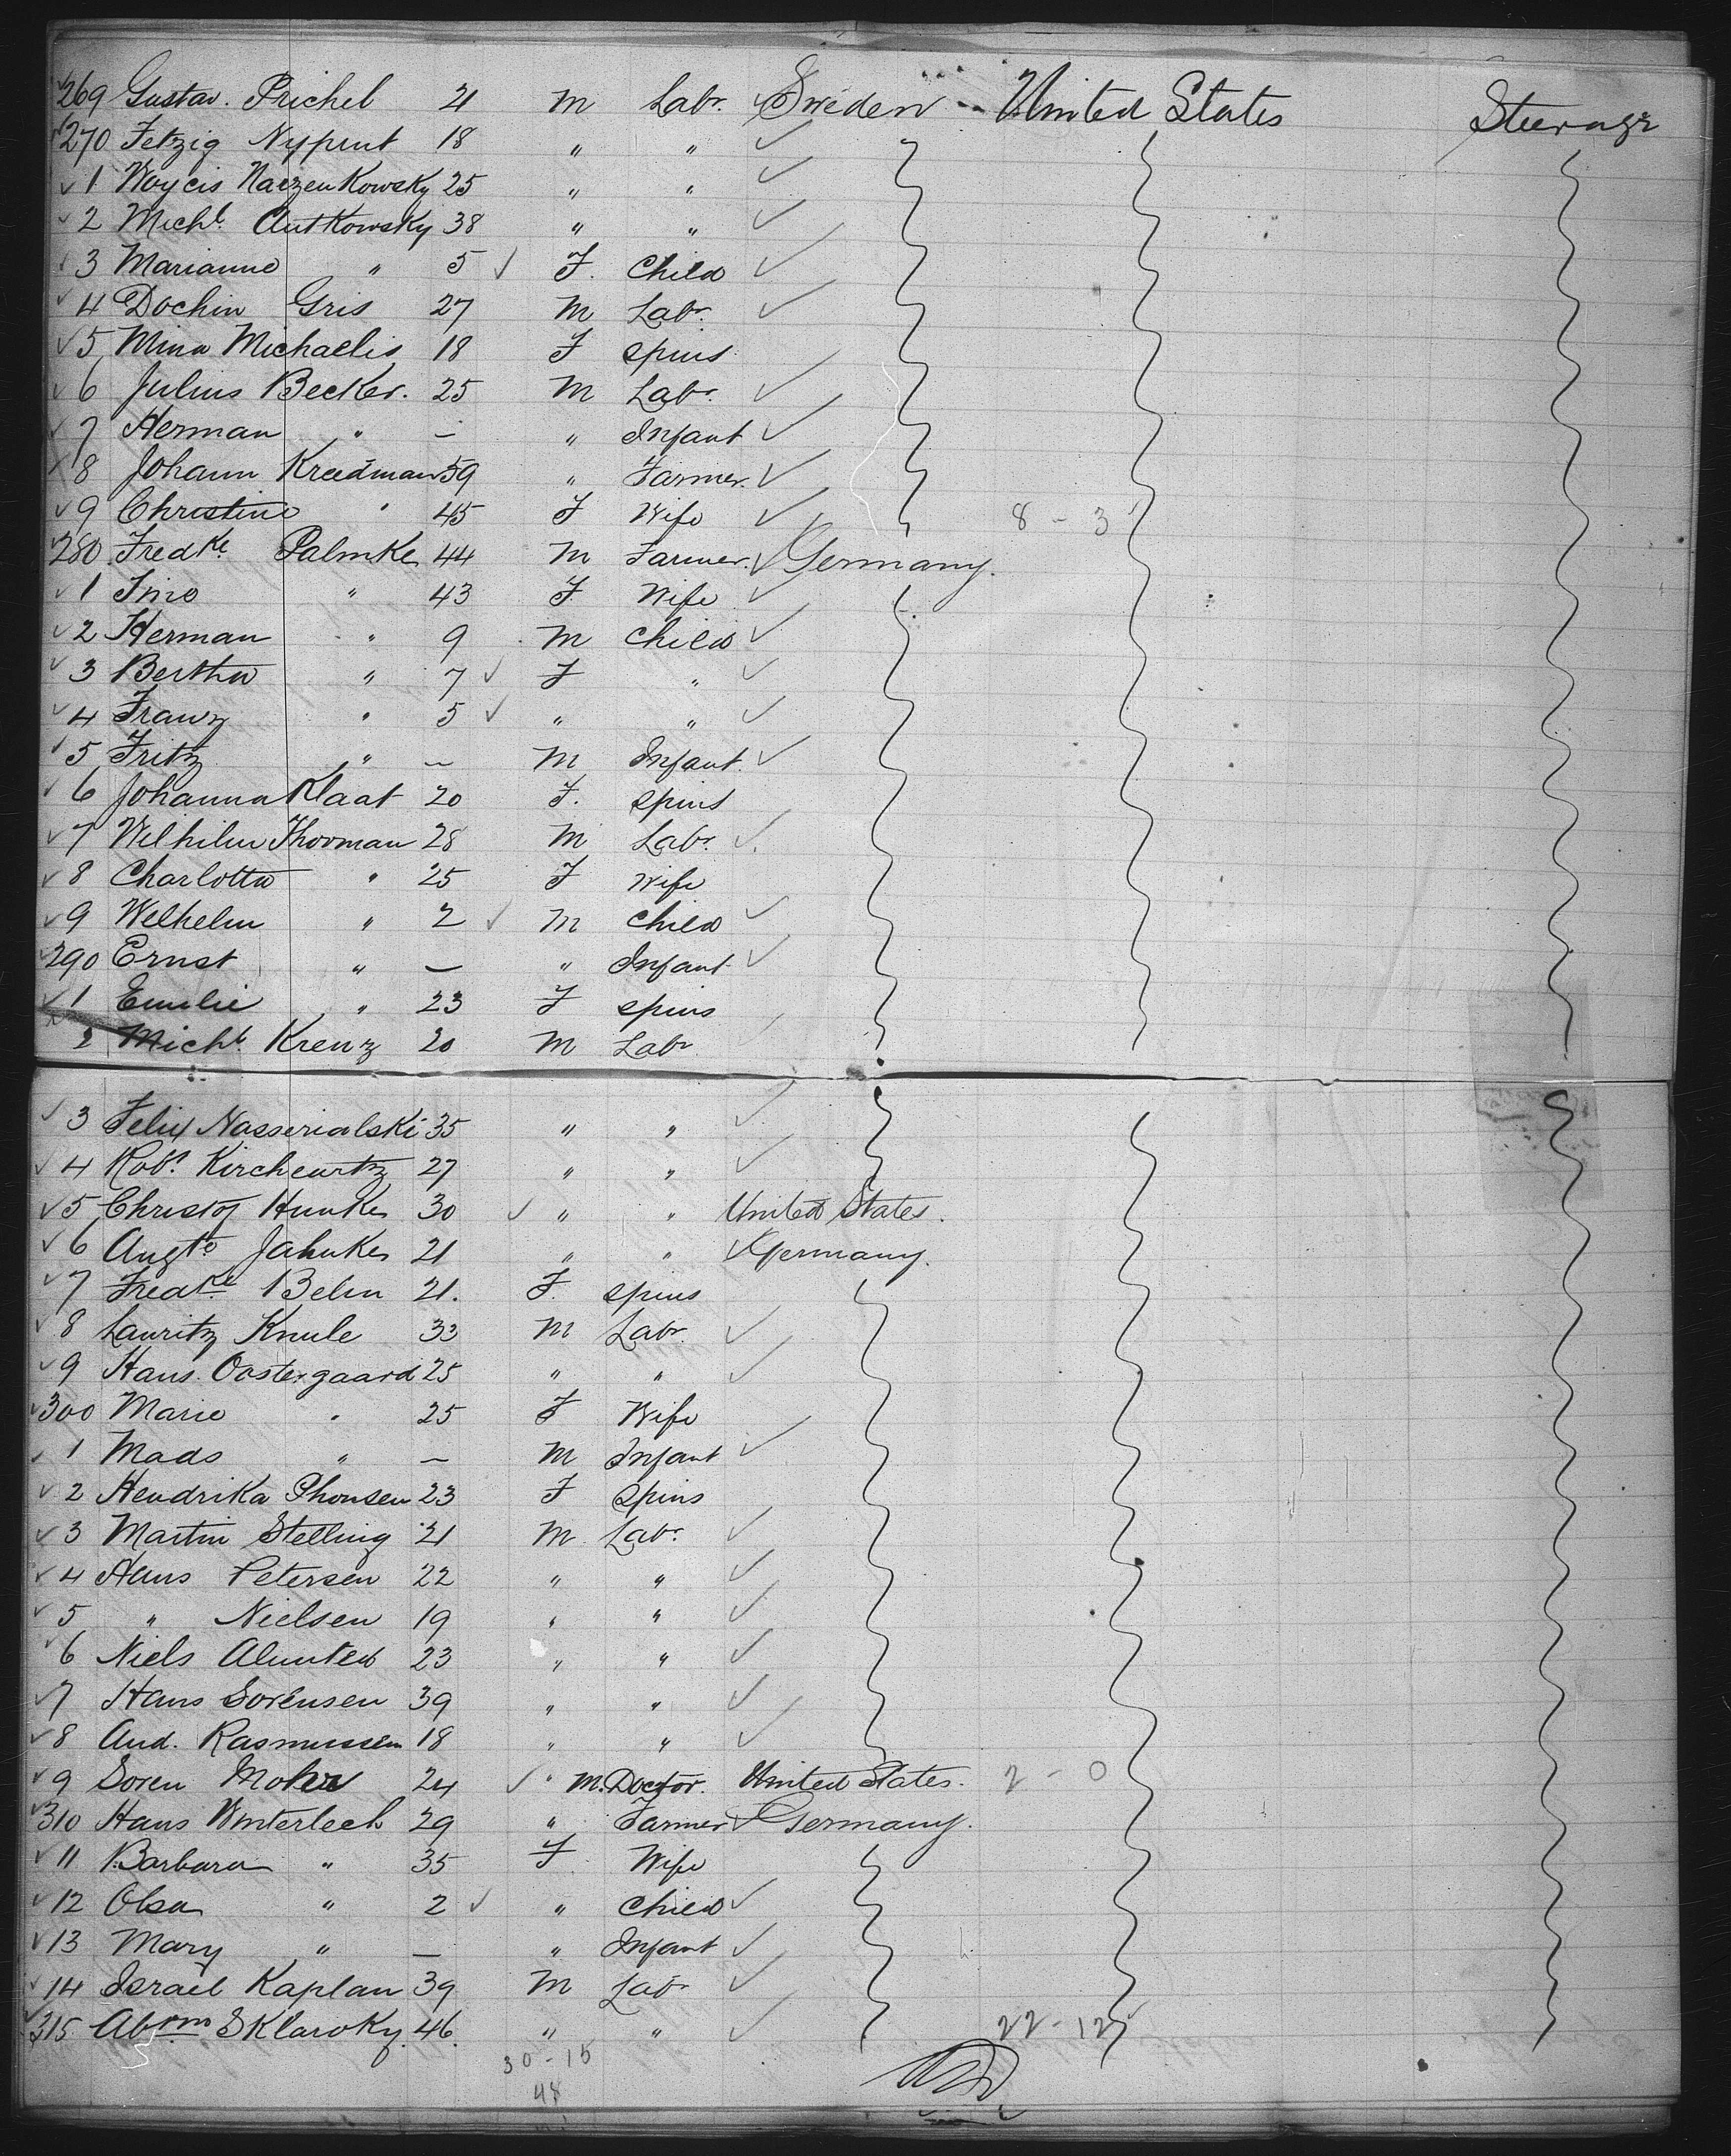 269 Gustav. Prichel 21 M Labr. Sweden United States Steerage
270 Fetzig Nypent 18 " "
1 Woycis Narzenkowsky 25 " "
2 Michl. Autkowsky 38 " "
3 Marianne " 5 F. Child
4 Dochin Gris 27 M Labr.
5 Mina Michaelis 18 F Spins
6 Julius Becker. 25 M Labr.
7 Herman " — " Infant
8 Johann Kreedman 59 " Farmer.
9 Christine " 45 F Wife 8 - 3
280 Fredke. Palmke 44 M Farmer. Germany.
1 Fino " 43 F Wife
2 Herman " 9 M Child
3 Bertha " 7 F "
4 Franz " 5 " "
5 Fritz " — M Infant.
6 Johanna Klaat 20 F. Spins
7 Wilhilm Thorman 28 M Labr.
8 Charlotta " 25 F Wife
9 Welhelm " 2 M Child
290 Ernst " — " Infant
1 Emilie " 23 F Spins
2 Michl. Krenz 20 M Labr
3 Felix Nasserialski 35 " "
4 Robt. Kircheurtz 27 " "
5 Christof Hunke 30 " " United States.
6 Augte Jahnke 21 " " Germany.
7 Fredke Belm 21. F. Spins
8 Lauritz Knule 33 M Labr.
9 Hans. Oostergaard 25 " "
300 Marie " 25 F Wife
1 Mads " — M Infant
2 Hendrika Phonsen 23 F Spins
3 Martin Stelling 21 M Labr.
4 Hans Petersen 22 " "
5 " Nielsen 19 " "
6 Niels 23 " "
7 Hans Sorensen 39 " "
8 And. Rasmussen 18 " "
9 Soren Mohr 24 " M. Doctor. United States. 2 - 0
310 Hans Winterlech 29 " Farmer Germany.
11 Barbara " 35 F Wife
12 Olsa " 2 " Child
13 Mary " — " Infant
14 Israel Kaplan 39 M Labr
315 Abrm Sklaroky. 46. " " 22 - 12
30 - 15
48